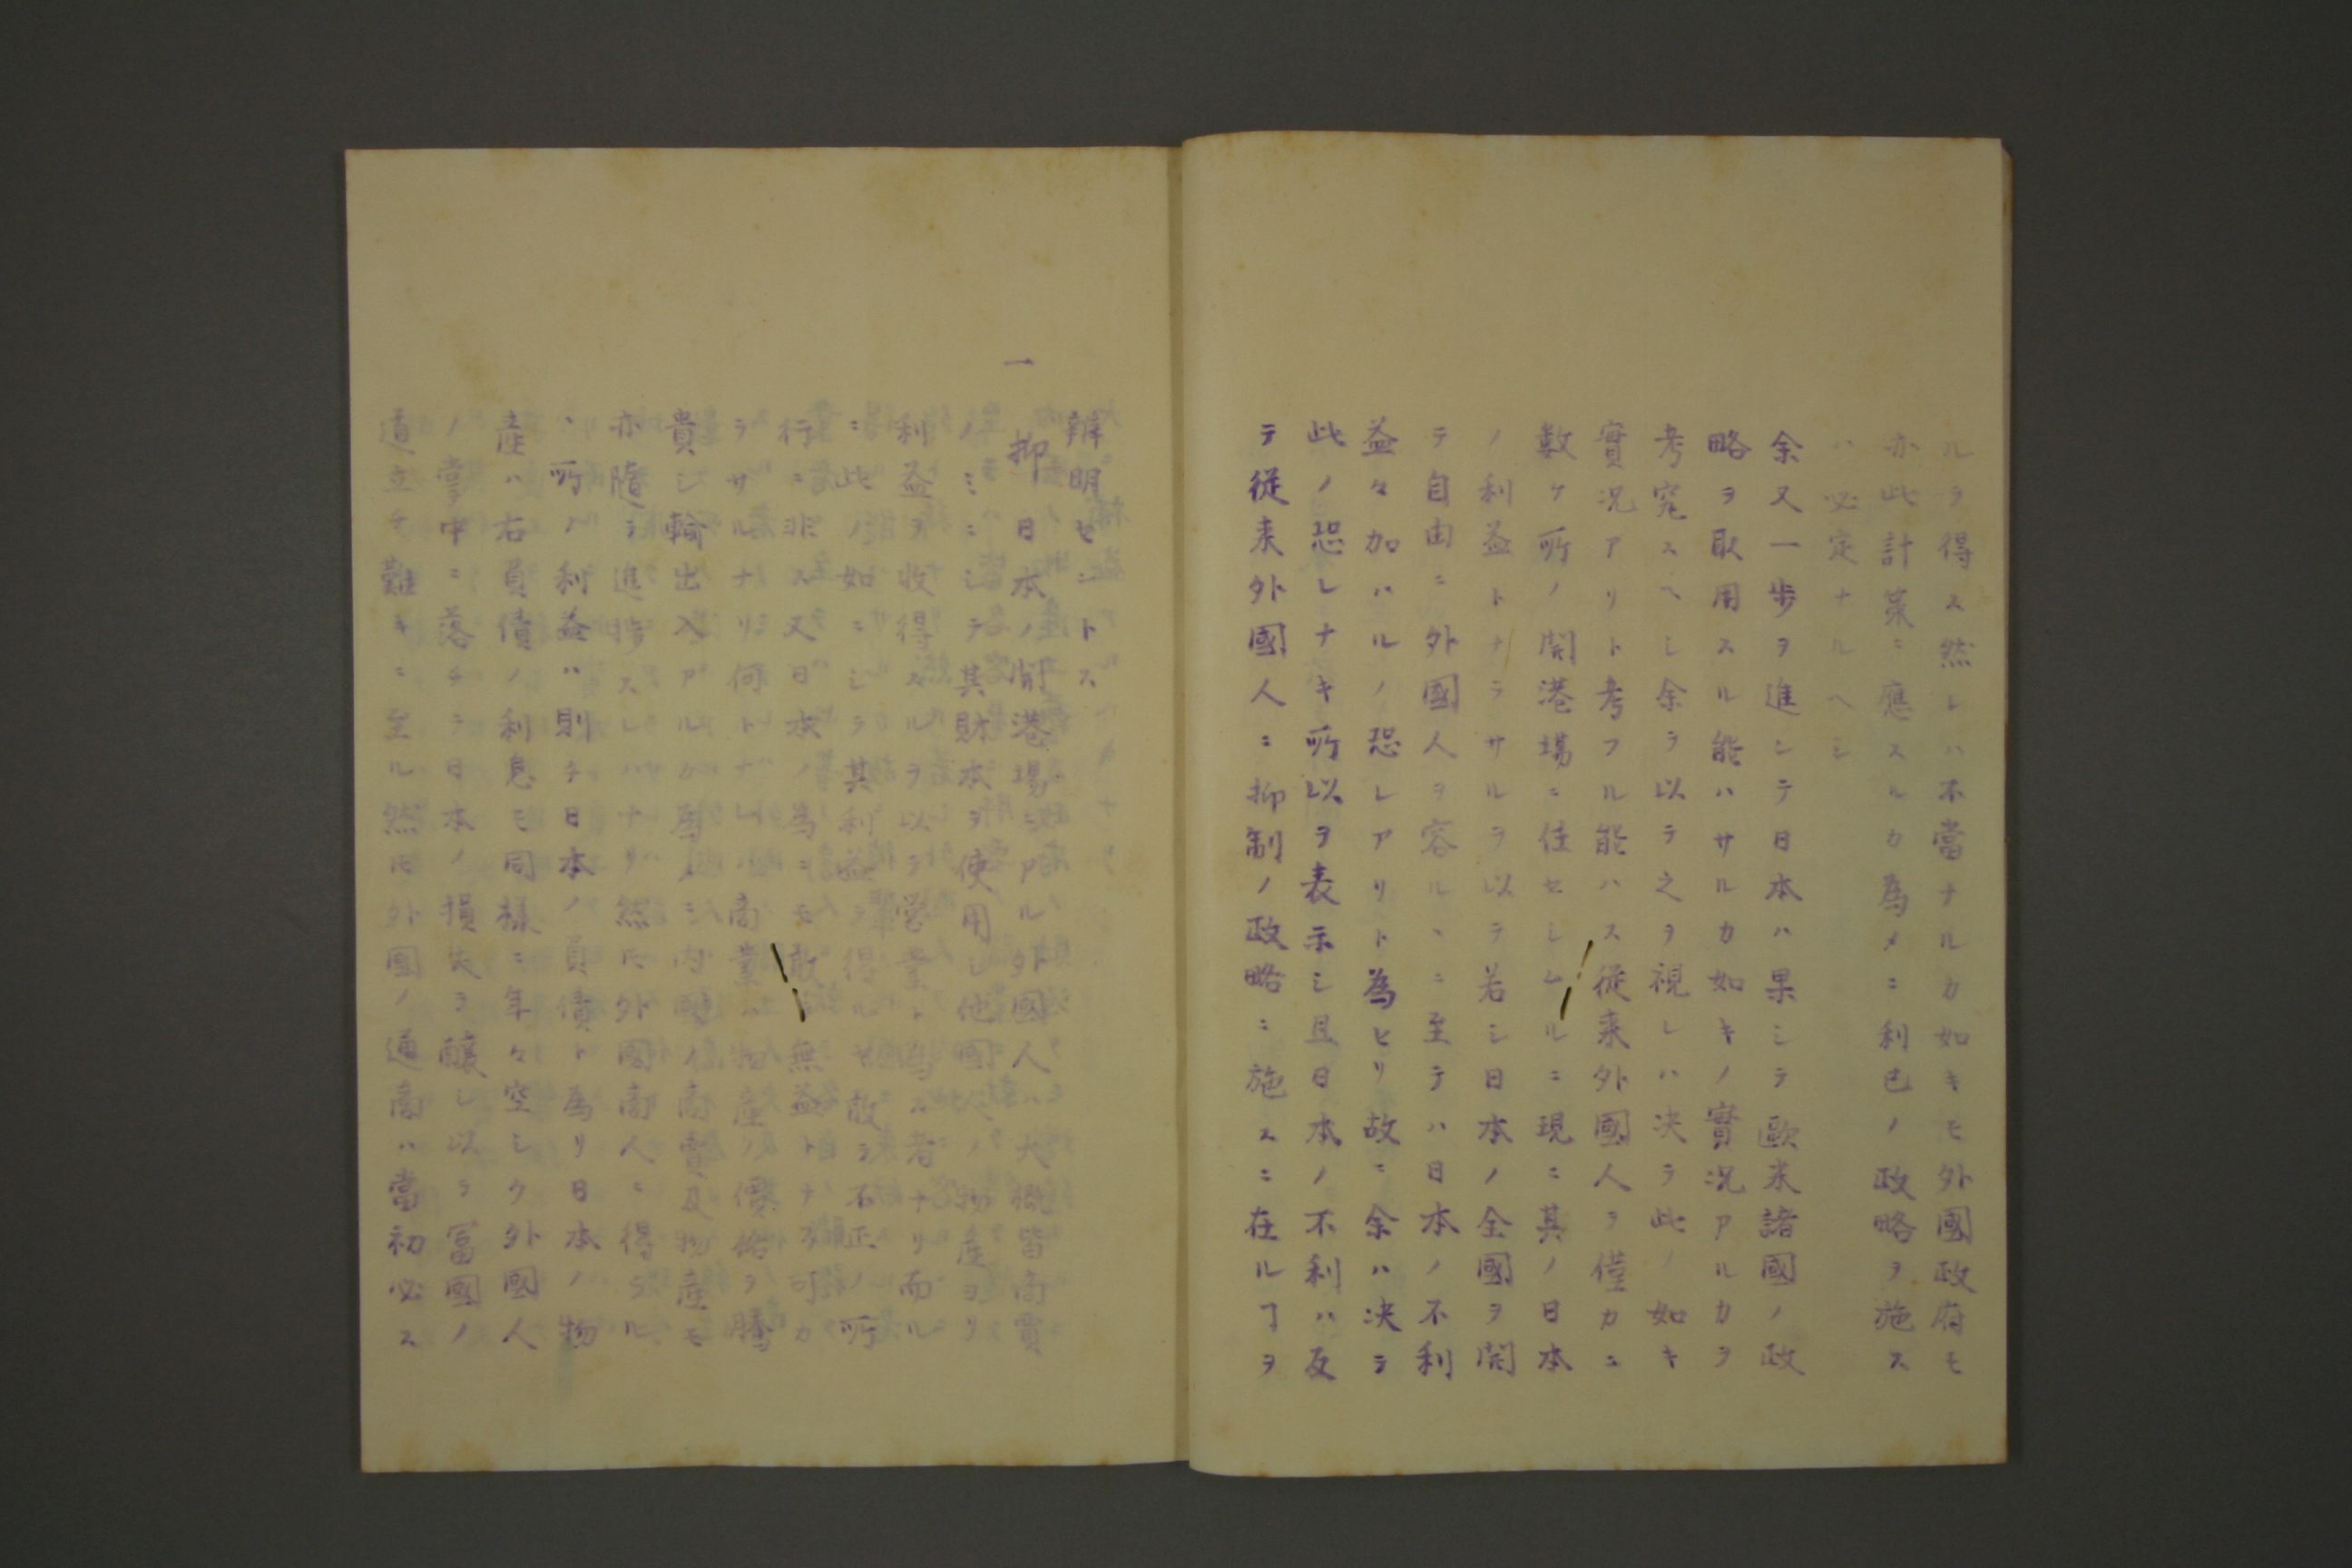 ルヲ得ス然レハ不當ナルカ如キモ外國政府モ
亦此計策ニ應スルカ為メニ利己ノ政略ヲ施ス
ハ必定ナルヘシ
余又一歩ヲ進シテ日本ハ果シテ歐米諸國ノ政
略ヲ取用スル能ハサルカ如キノ實況アルカヲ
考究スヘシ余ヲ以テ之ヲ視レハ决テ此ノ如キ
實况アリト考フル能ハス從来外國人ヲ僅カニ
数ケ所ノ開港場ニ住セシムルニ現ニ其ノ日本
ノ利益トナラサルヲ以テ若シ日本ノ全國ヲ開
テ自由ニ外國人ヲ容ルヽニ至テハ日本ノ不利
益々加ハルノ恐レアリト為セリ故ニ余ハ决テ
此ノ恐レナキ所以ヲ表示シ且日本ノ不利ハ反
テ從来外國人ニ抑制ノ政略ニ施スニ在ルヿヲ
辨明セントス
一 抑日本ノ開港場ニアル外國人ハ大概皆商賈
ノミニシテ其財本ヲ使用シ他國人ノ物産ヨリ
利益ヲ收得スルヲ以テ営業ト為ス者ナリ而ル
ニ此ノ如ニシテ其利益ヲ得ルモ敢テ不正ノ所
行ニ非ス又日本ノ為ニモ敢テ無益トナス可カ
ラサルナリ何トナレハ商業ハ物産ノ價格ヲ騰
貴シ輸出入アルカ為メニ内國ノ商賣及物産モ
亦隨テ進捗スレハナリ然𪜈外國商人ニ得ラル
ヽ所ノ利益ハ則チ日本ノ負債ト為リ日本ノ物
産ハ右負債ノ利息モ同様ニ年々空シク外國人
ノ掌中ニ落チテ日本ノ損失ヲ釀シ以テ富國ノ
道立チ難キニ至ル然𪜈外國ノ通商ハ當初必ス